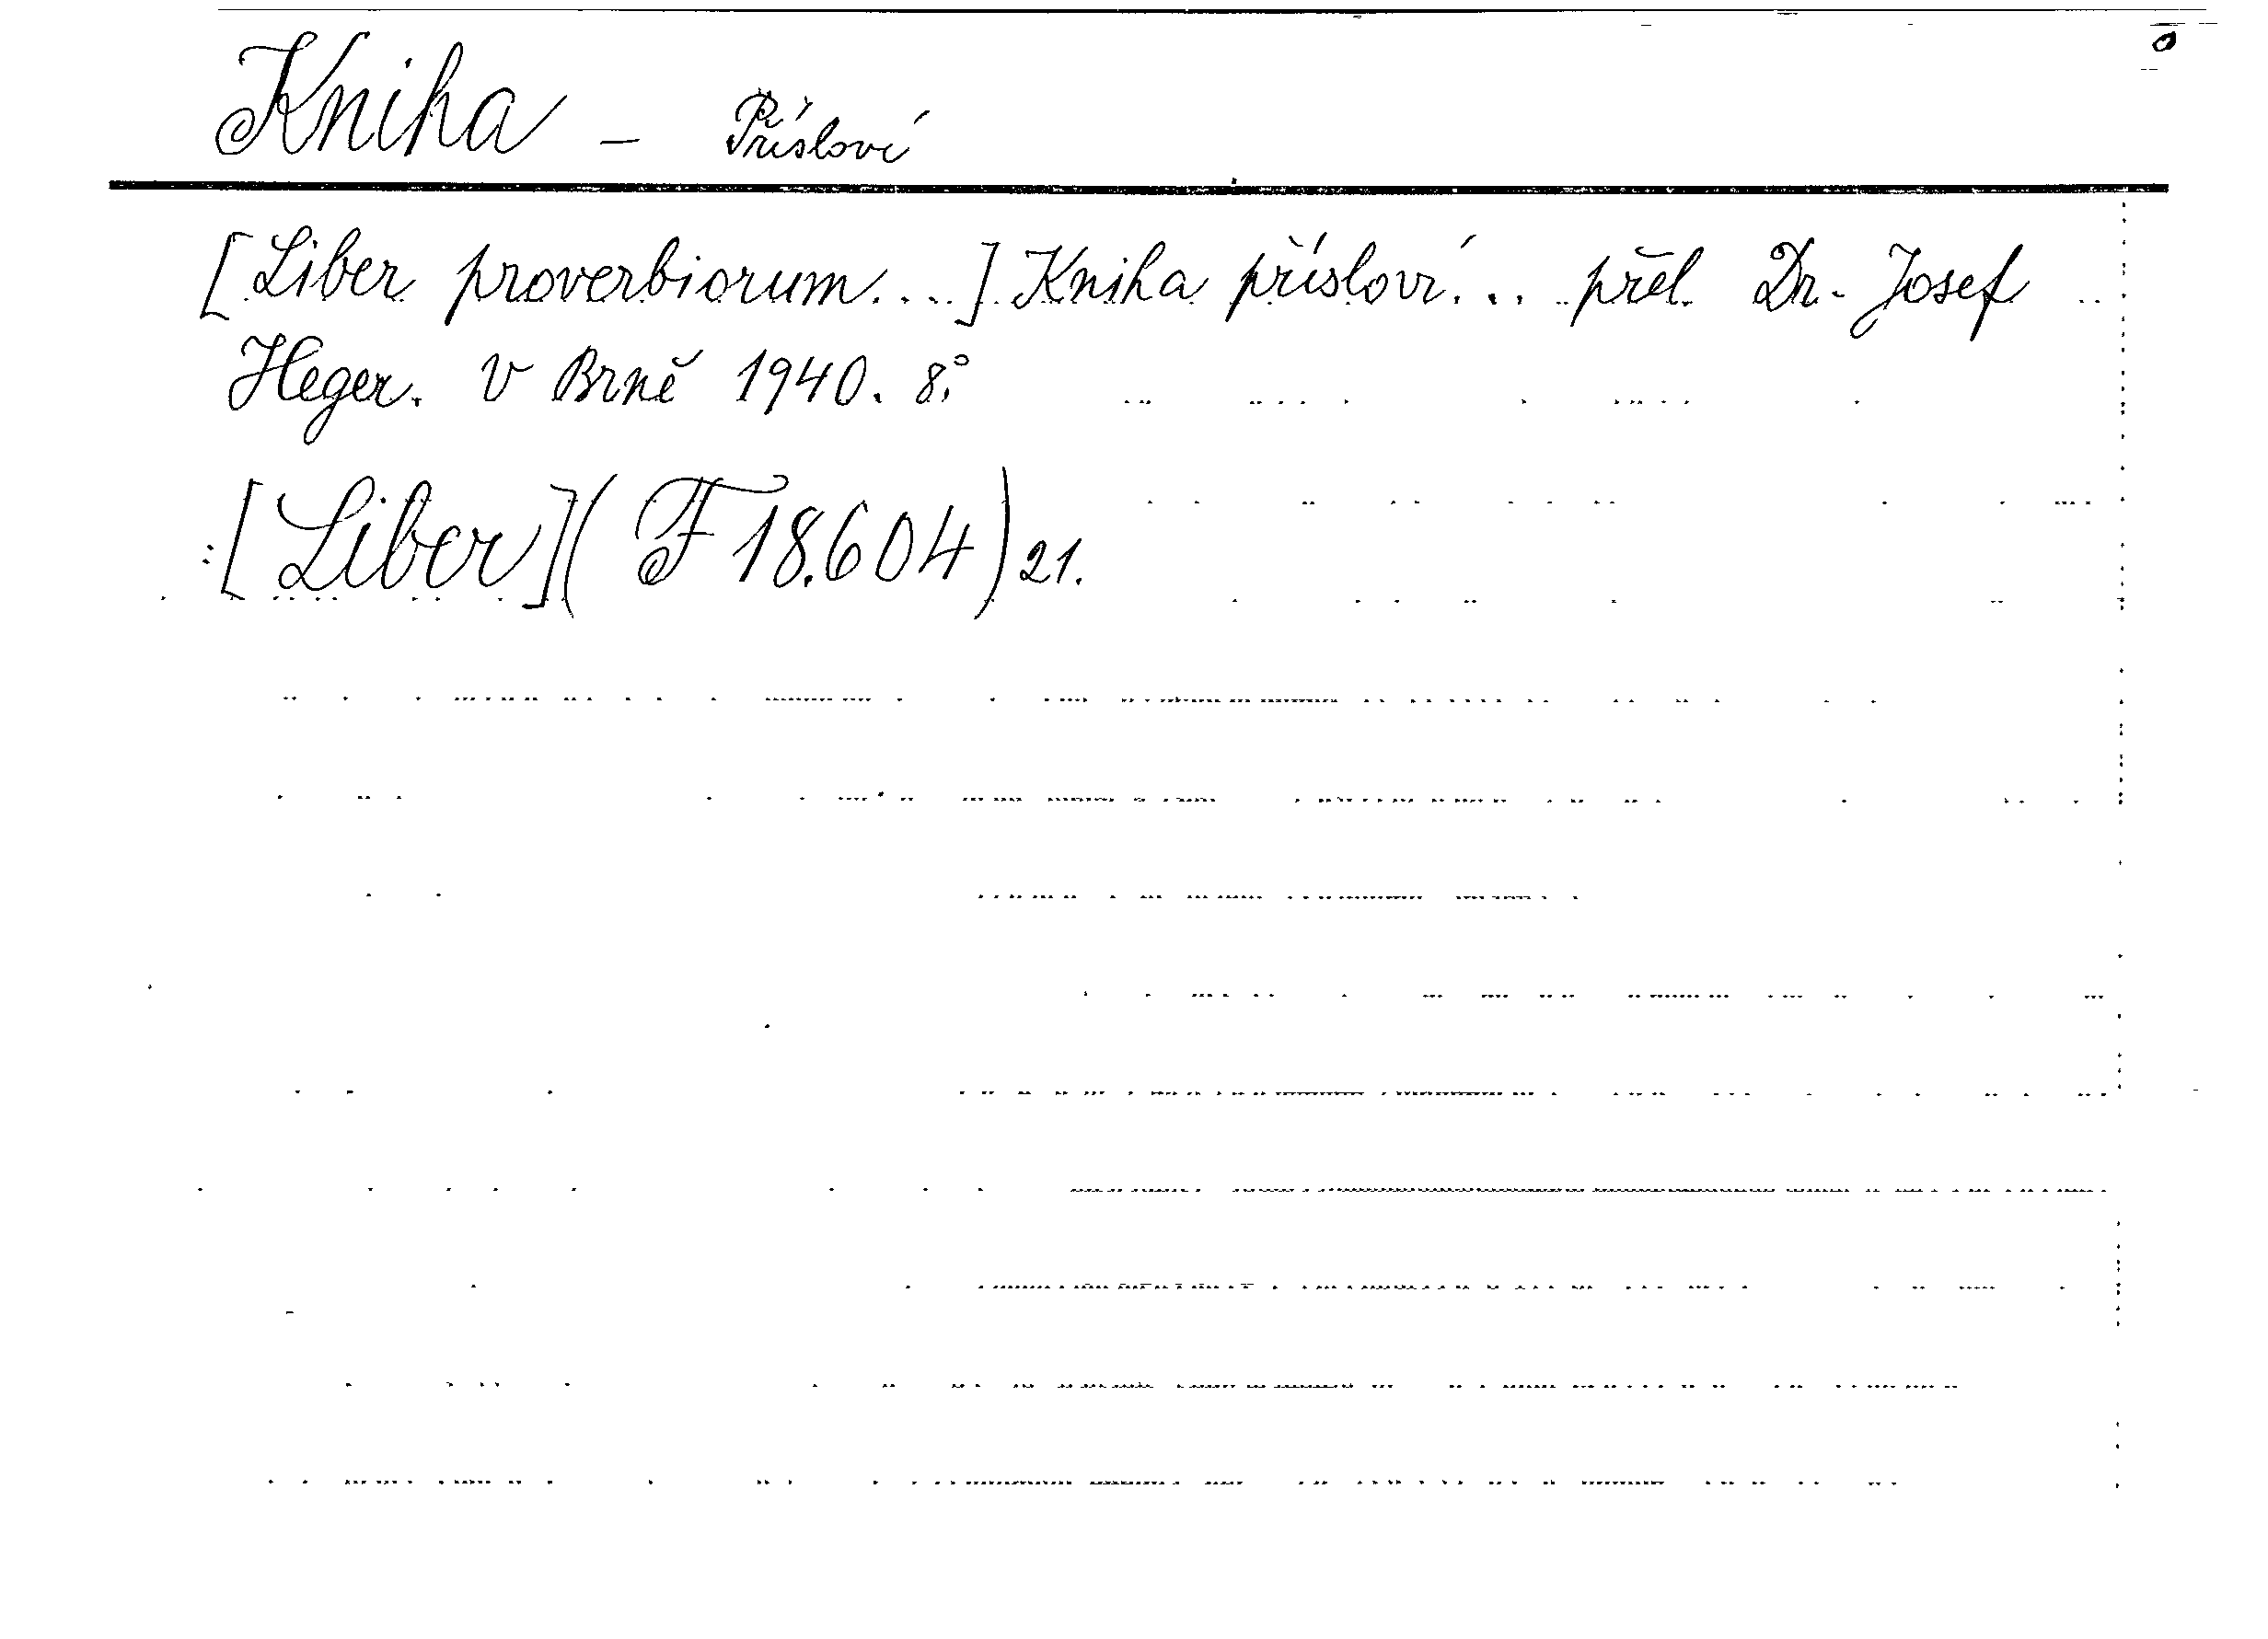 Kniha – Přísloví
[Liber proverbiorum...] Kniha přísloví... přel. Dr. Josef
Heger. V Brně 1940. 8°.
:[Liber](F 18.604) 21.